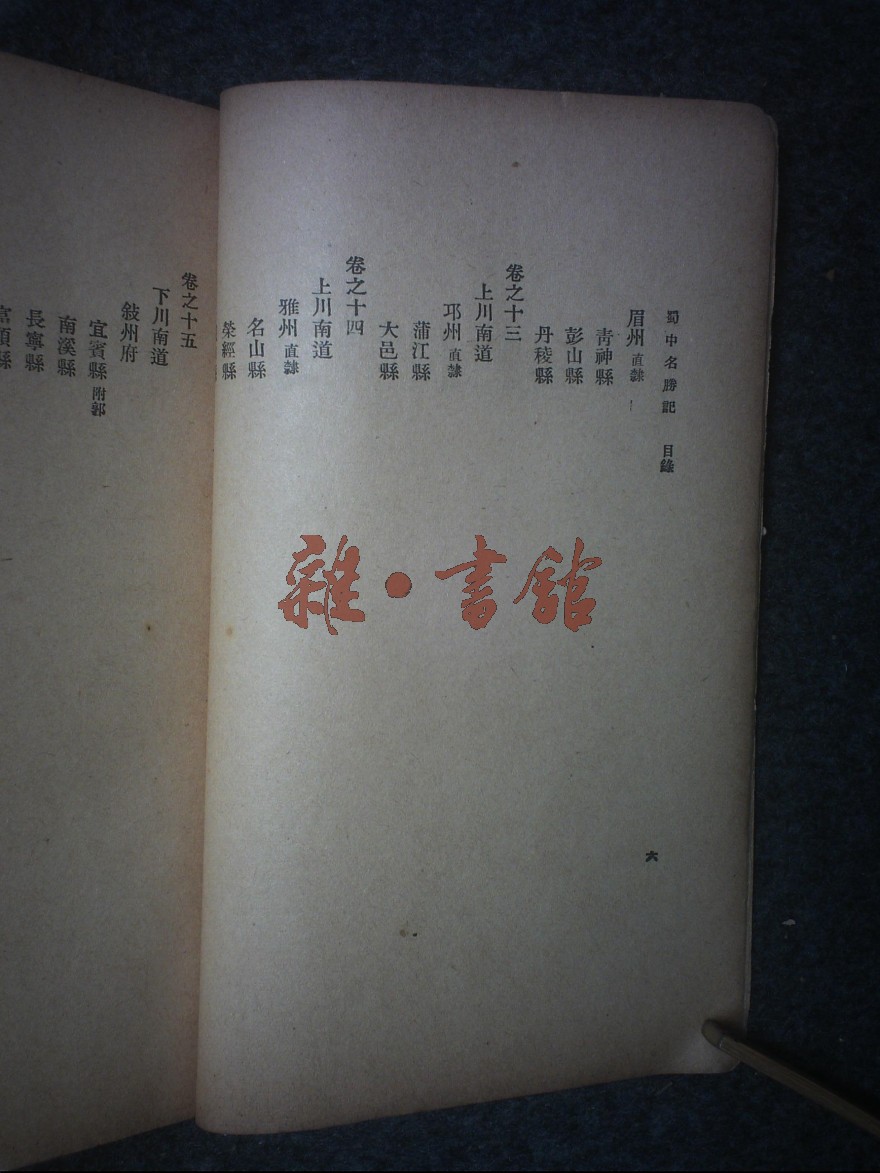 蜀中名勝記 目錄
眉州 直隸
青神縣
彭山縣
丹稜縣
卷之十三
上川南道
邛州 直隸
蒲江縣
大邑縣
卷之十四
上川南道
雅州 直隸
名山縣
榮經縣
六
卷之十五
下川南道
敍州府
宜賓縣 附郭
南溪縣
長寧縣
富順縣
雜·書館